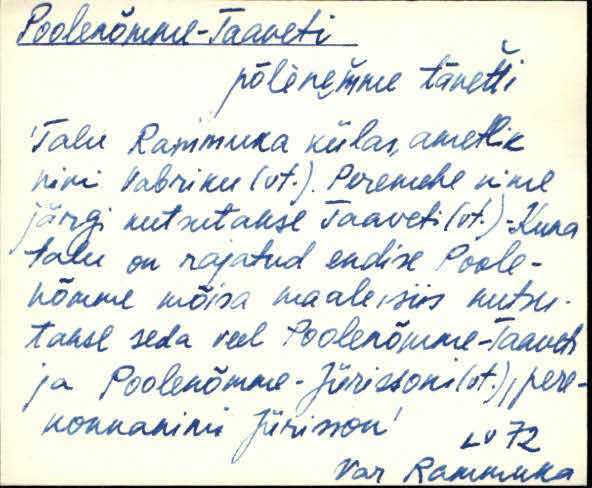 Poolenõmme-Taaveti
pōlènemme tāvetti
'Talu Rammuka külas, ametlik
nimi Vabriku (vt.). Peremehe nime
järgi kutsutakse Taaveti (vt.) - Kuna
talu on rajatud endise Poole-
nõmme mõisa maale, siis kutsu-
takse seda veel Poolenõmme-Taaveti
ja Poolenõmme-Jürissoni (vt.), pere-
konnanimi Jürisson'
LV 72
Var Rammuka